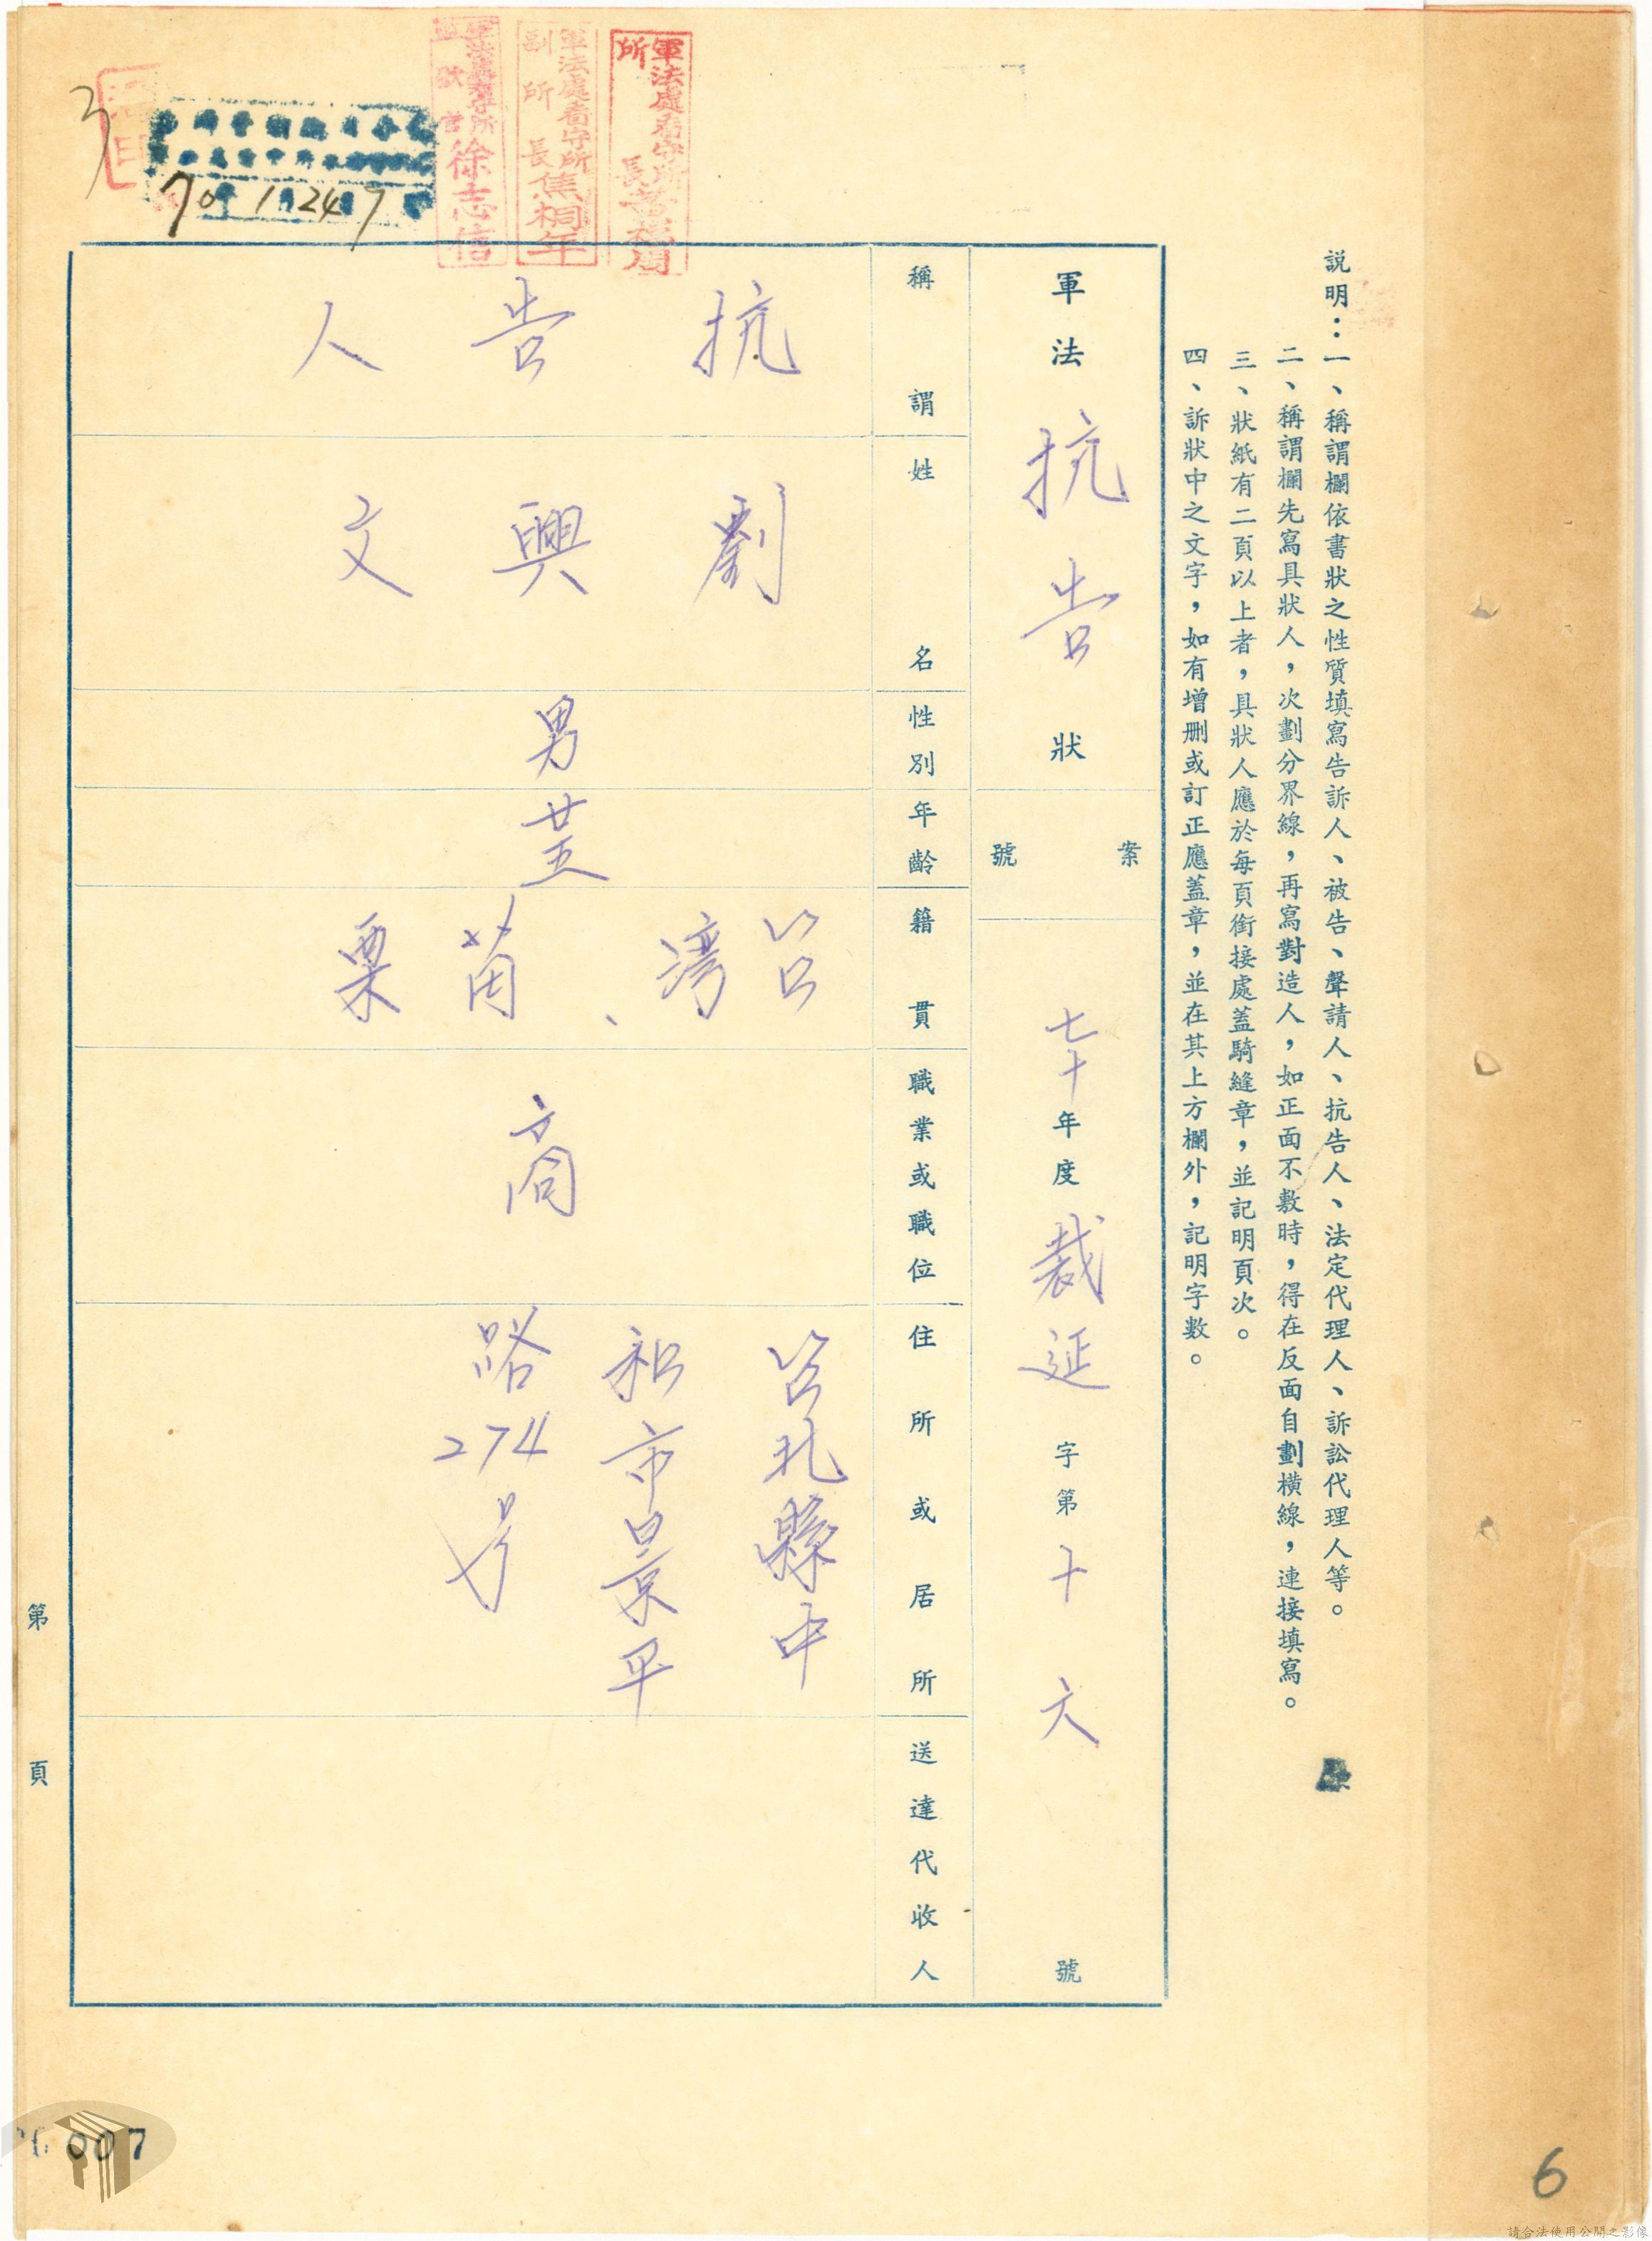 説明：一、稱謂欄依書狀之性質填寫告訴人、被告、聲請人、抗告人、法定代理人、訴訟代理人等。
二、稱謂欄先寫具狀人，次劃分界線，再寫對造人，如正面不敷時，得在反面自劃橫線，連接填寫。
三、狀紙有二頁以上者，具狀人應於每頁銜接處蓋騎縫章，並記明頁次。
四、訴狀中之文字，如有增刪或訂正應蓋章，並在其上方欄外，記明字數。
軍法抗告狀
案號
七十年度裁延字第十六號
稱謂
姓名
性別
年齡
籍貫
職業或職位
住所或居所
送達代收人
抗告人
劉興文
男
廿五
台灣、苗栗
商
台北縣中
和市景平
路274号
軍法處看守所
所長
軍法處看守所
副所長焦桐年
徐志信
70 1 24 7
3
第頁
007
6
請合法使用公開之影像